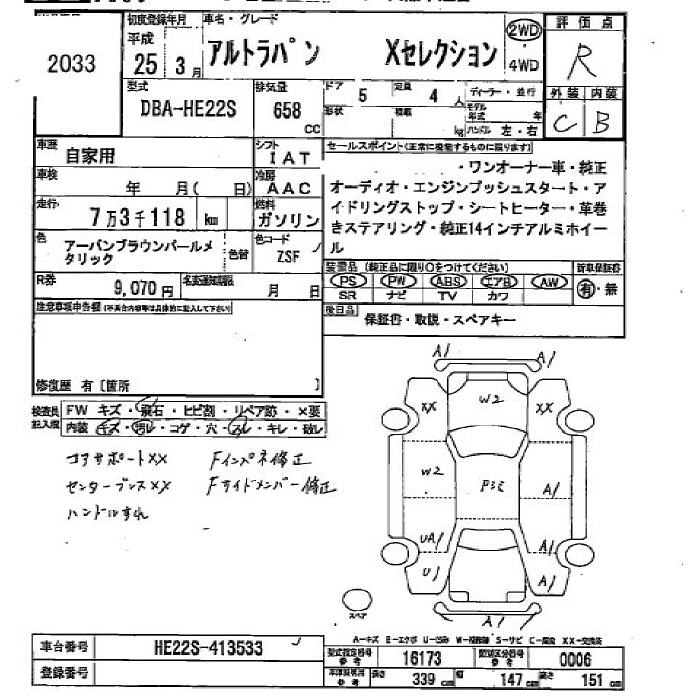 2033
初度登録年月
平成
25 3月
車名・グレード
アルトラパン Xセレクション
2WD
・4WD
評価点
R
型式
DBA-HE22S
排気量
658 CC
ドア
5
定員
4 人
形状
積載
kg
ディーラー・並行
モデル年式 年
ハンドル 左・右
外装 内装
C B
車歴
自家用
シフト
IAT
車検
年 月( 日)
冷房
AAC
走行
7万3千118 km
燃料
ガソリン
色
アーバンブラウンパールメタリック
色替
色コード
ZSF
R券
9,070円
名変通知期限
月 日
セールスポイント(正常に機能するものに限ります)
・ワンオーナー車・純正
オーディオ・エンジンプッシュスタート・ア
イドリングストップ・シートヒーター・革巻
きステアリング・純正14インチアルミホイー
ル
装備品(純正品に限り○をつけてください)
新車保証書
PS PW ABS エアB AW
SR ナビ TV カワ
有・無
後日品
保証書・取説・スペアキー
注意事項申告欄(不具合内容等は具体的に記入して下さい)
修復歴 有〔箇所 〕
検査員記入欄
FW キズ・飛石・ヒビ割・リペア跡・×要
内装 キズ・汚レ・コゲ・穴・スレ・キレ・破レ
コアサポートXX Fインパネ修正
センターブレスXX Fサイドメンバー修正
ハンドルすれ
A1 A1
XX W2 XX
W2 Pミ A1
UA1 A1
U1 A1
A1 A1
スペア
A-キズ E-エクボ U-凹み W-補修跡 S-サビ C-腐食 XX-交換済
車台番号
HE22S-413533
登録番号
型式指定番号
参考
16173
類別区分番号
参考
0006
参考
長さ
339 cm
幅
147 cm
高さ
151 cm